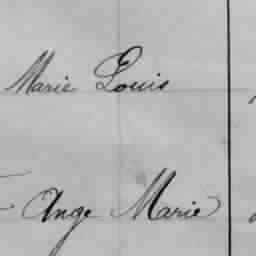 Marie Louis
Ange Marie